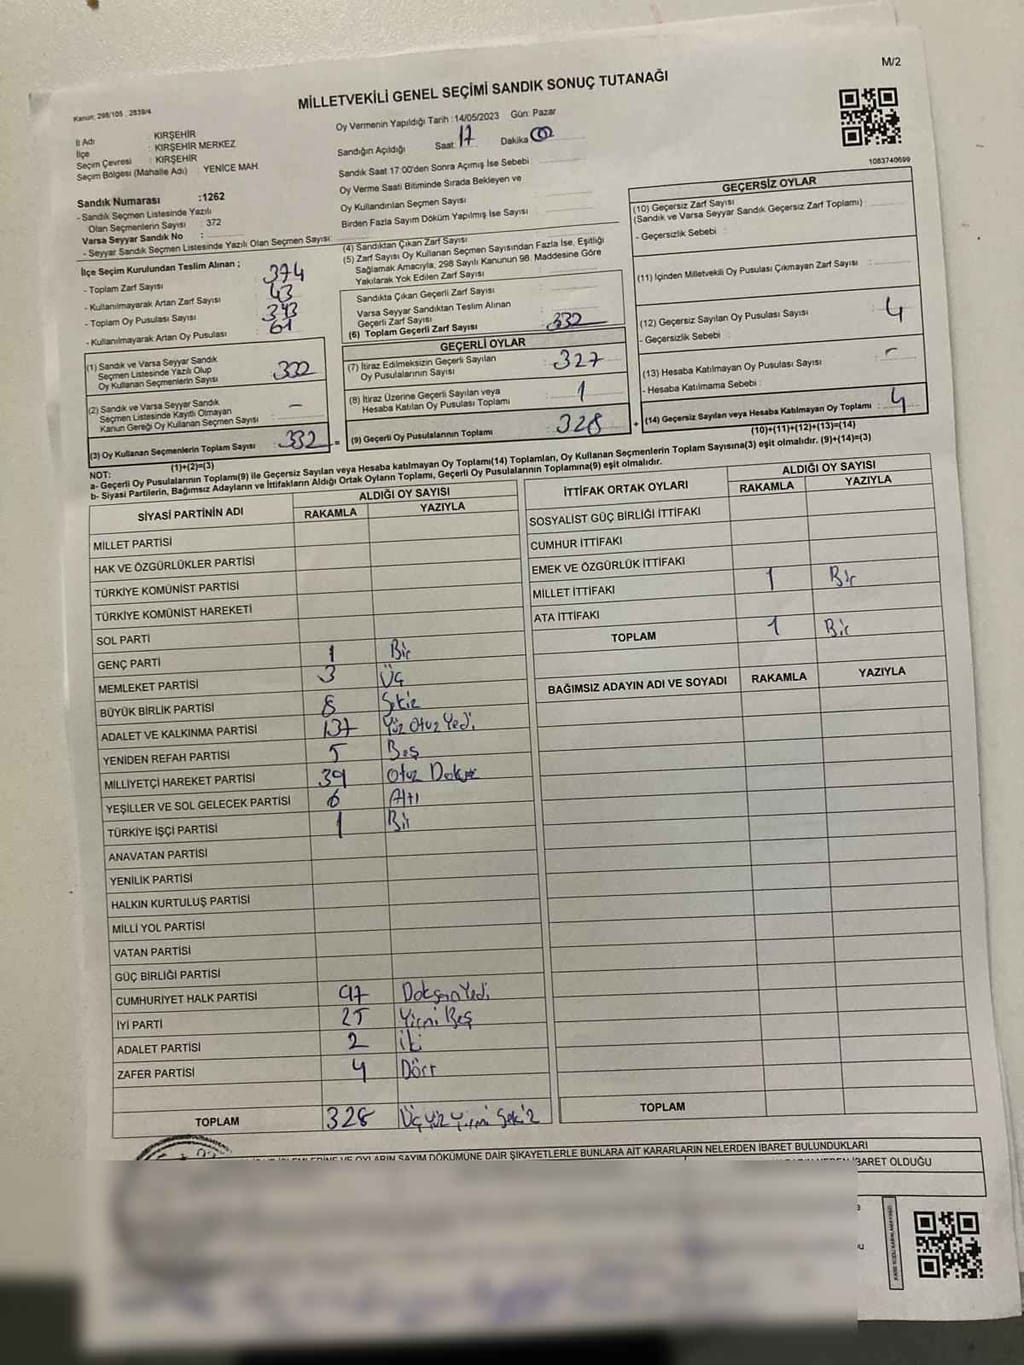 M/2
MİLLETVEKİLİ GENEL SEÇİMİ SANDIK SONUÇ TUTANAĞI
Kanun: 298/105 , 2839/4
İl Adı : KIRŞEHİR
İlçe : KIRŞEHİR MERKEZ
Seçim Çevresi : KIRŞEHİR
Seçim Bölgesi (Mahalle Adı) : YENİCE MAH
Sandık Numarası :1262
- Sandık Seçmen Listesinde Yazılı
Olan Seçmenlerin Sayısı : 372
Varsa Seyyar Sandık No :
- Seyyar Sandık Seçmen Listesinde Yazılı Olan Seçmen Sayısı:
Oy Vermenin Yapıldığı Tarih :14/05/2023 Gün: Pazar
Sandığın Açıldığı Saat: 17 Dakika: 00
Sandık Saat 17:00'den Sonra Açımış İse Sebebi
Oy Verme Saati Bitiminde Sırada Bekleyen ve
Oy Kullandırılan Seçmen Sayısı
Birden Fazla Sayım Döküm Yapılmış İse Sayısı
1083740699
İlçe Seçim Kurulundan Teslim Alınan ;
- Toplam Zarf Sayısı : 374
- Kullanılmayarak Artan Zarf Sayısı : 43
- Toplam Oy Pusulası Sayısı : 393
- Kullanılmayarak Artan Oy Pusulası : 61
(1) Sandık ve Varsa Seyyar Sandık
Seçmen Listesinde Yazılı Olup
Oy Kullanan Seçmenlerin Sayısı : 332
(2) Sandık ve Varsa Seyyar Sandık
Seçmen Listesinde Kayıtlı Olmayan
Kanun Gereği Oy Kullanan Seçmen Sayısı : –
(3) Oy Kullanan Seçmenlerin Toplam Sayısı : 332
(1)+(2)=(3)
(4) Sandıktan Çıkan Zarf Sayısı
(5) Zarf Sayısı Oy Kullanan Seçmen Sayısından Fazla İse, Eşitliği
Sağlamak Amacıyla, 298 Sayılı Kanunun 98. Maddesine Göre
Yakılarak Yok Edilen Zarf Sayısı
Sandıkta Çıkan Geçerli Zarf Sayısı
Varsa Seyyar Sandıktan Teslim Alınan
Geçerli Zarf Sayısı
(6) Toplam Geçerli Zarf Sayısı : 332
GEÇERLİ OYLAR
(7) İtiraz Edilmeksizin Geçerli Sayılan
Oy Pusulalarının Sayısı : 327
(8) İtiraz Üzerine Geçerli Sayılan veya
Hesaba Katılan Oy Pusulası Toplamı : 1
= (9) Geçerli Oy Pusulalarının Toplamı : 328
GEÇERSİZ OYLAR
(10) Geçersiz Zarf Sayısı
(Sandık ve Varsa Seyyar Sandık Geçersiz Zarf Toplamı) :
- Geçersizlik Sebebi :
(11) İçinden Milletvekili Oy Pusulası Çıkmayan Zarf Sayısı :
(12) Geçersiz Sayılan Oy Pusulası Sayısı : 4
- Geçersizlik Sebebi :
(13) Hesaba Katılmayan Oy Pusulası Sayısı : –
- Hesaba Katılmama Sebebi :
+ (14) Geçersiz Sayılan veya Hesaba Katılmayan Oy Toplamı : 4
(10)+(11)+(12)+(13)=(14)
NOT:
a- Geçerli Oy Pusulalarının Toplamı(9) ile Geçersiz Sayılan veya Hesaba katılmayan Oy Toplamı(14) Toplamları, Oy Kullanan Seçmenlerin Toplam Sayısına(3) eşit olmalıdır. (9)+(14)=(3)
b- Siyasi Partilerin, Bağımsız Adayların ve İttifakların Aldığı Ortak Oyların Toplamı, Geçerli Oy Pusulalarının Toplamına(9) eşit olmalıdır.
SİYASİ PARTİNİN ADI ALDIĞI OY SAYISI
RAKAMLA YAZIYLA
MİLLET PARTİSİ
HAK VE ÖZGÜRLÜKLER PARTİSİ
TÜRKİYE KOMÜNİST PARTİSİ
TÜRKİYE KOMÜNİST HAREKETİ
SOL PARTİ
GENÇ PARTİ 1 Bir
MEMLEKET PARTİSİ 3 Üç
BÜYÜK BİRLİK PARTİSİ 8 Sekiz
ADALET VE KALKINMA PARTİSİ 137 Yüz Otuz Yedi
YENİDEN REFAH PARTİSİ 5 Beş
MİLLİYETÇİ HAREKET PARTİSİ 39 Otuz Dokuz
YEŞİLLER VE SOL GELECEK PARTİSİ 6 Altı
TÜRKİYE İŞÇİ PARTİSİ 1 Bir
ANAVATAN PARTİSİ
YENİLİK PARTİSİ
HALKIN KURTULUŞ PARTİSİ
MİLLİ YOL PARTİSİ
VATAN PARTİSİ
GÜÇ BİRLİĞİ PARTİSİ
CUMHURİYET HALK PARTİSİ 97 Doksan Yedi
İYİ PARTİ 25 Yirmi Beş
ADALET PARTİSİ 2 İki
ZAFER PARTİSİ 4 Dört
TOPLAM 328 Üç Yüz Yirmi Sekiz
İTTİFAK ORTAK OYLARI ALDIĞI OY SAYISI
RAKAMLA YAZIYLA
SOSYALİST GÜÇ BİRLİĞİ İTTİFAKI
CUMHUR İTTİFAKI
EMEK VE ÖZGÜRLÜK İTTİFAKI
MİLLET İTTİFAKI 1 Bir
ATA İTTİFAKI
TOPLAM 1 Bir
BAĞIMSIZ ADAYIN ADI VE SOYADI RAKAMLA YAZIYLA
TOPLAM
OYLARIN SAYIM DÖKÜMÜNE DAİR ŞİKAYETLERLE BUNLARA AİT KARARLARIN NELERDEN İBARET BULUNDUKLARI
İBARET OLDUĞU